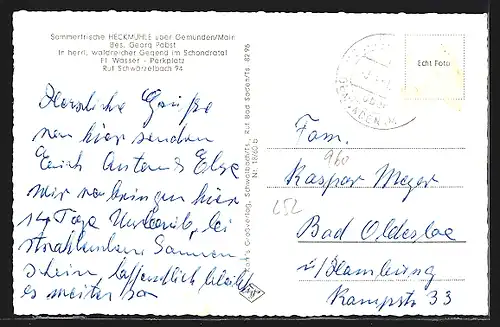 Sommerfrische HECKMÜHLE über Gemünden/Main
Bes. Georg Pabst
In herrl. waldreicher Gegend im Schondratal
Fl. Wasser - Parkplatz
Ruf Schwärzelbach 94
Herzliche Grüße
von hier senden
Euch Anton & Else
wir verbringen hier
14 Tage Urlaub, bei
strahlendem Sonnen
schein, hoffentlich bleibt
es weiter so
Schwalbach/Ts., Ruf Bad Soden/Ts. 8296
Nr. 1860 b
Echt Foto
Fam.
960
Kaspar Meyer
252
Bad Oldesloe
i/Hamburg
Kampstr 33